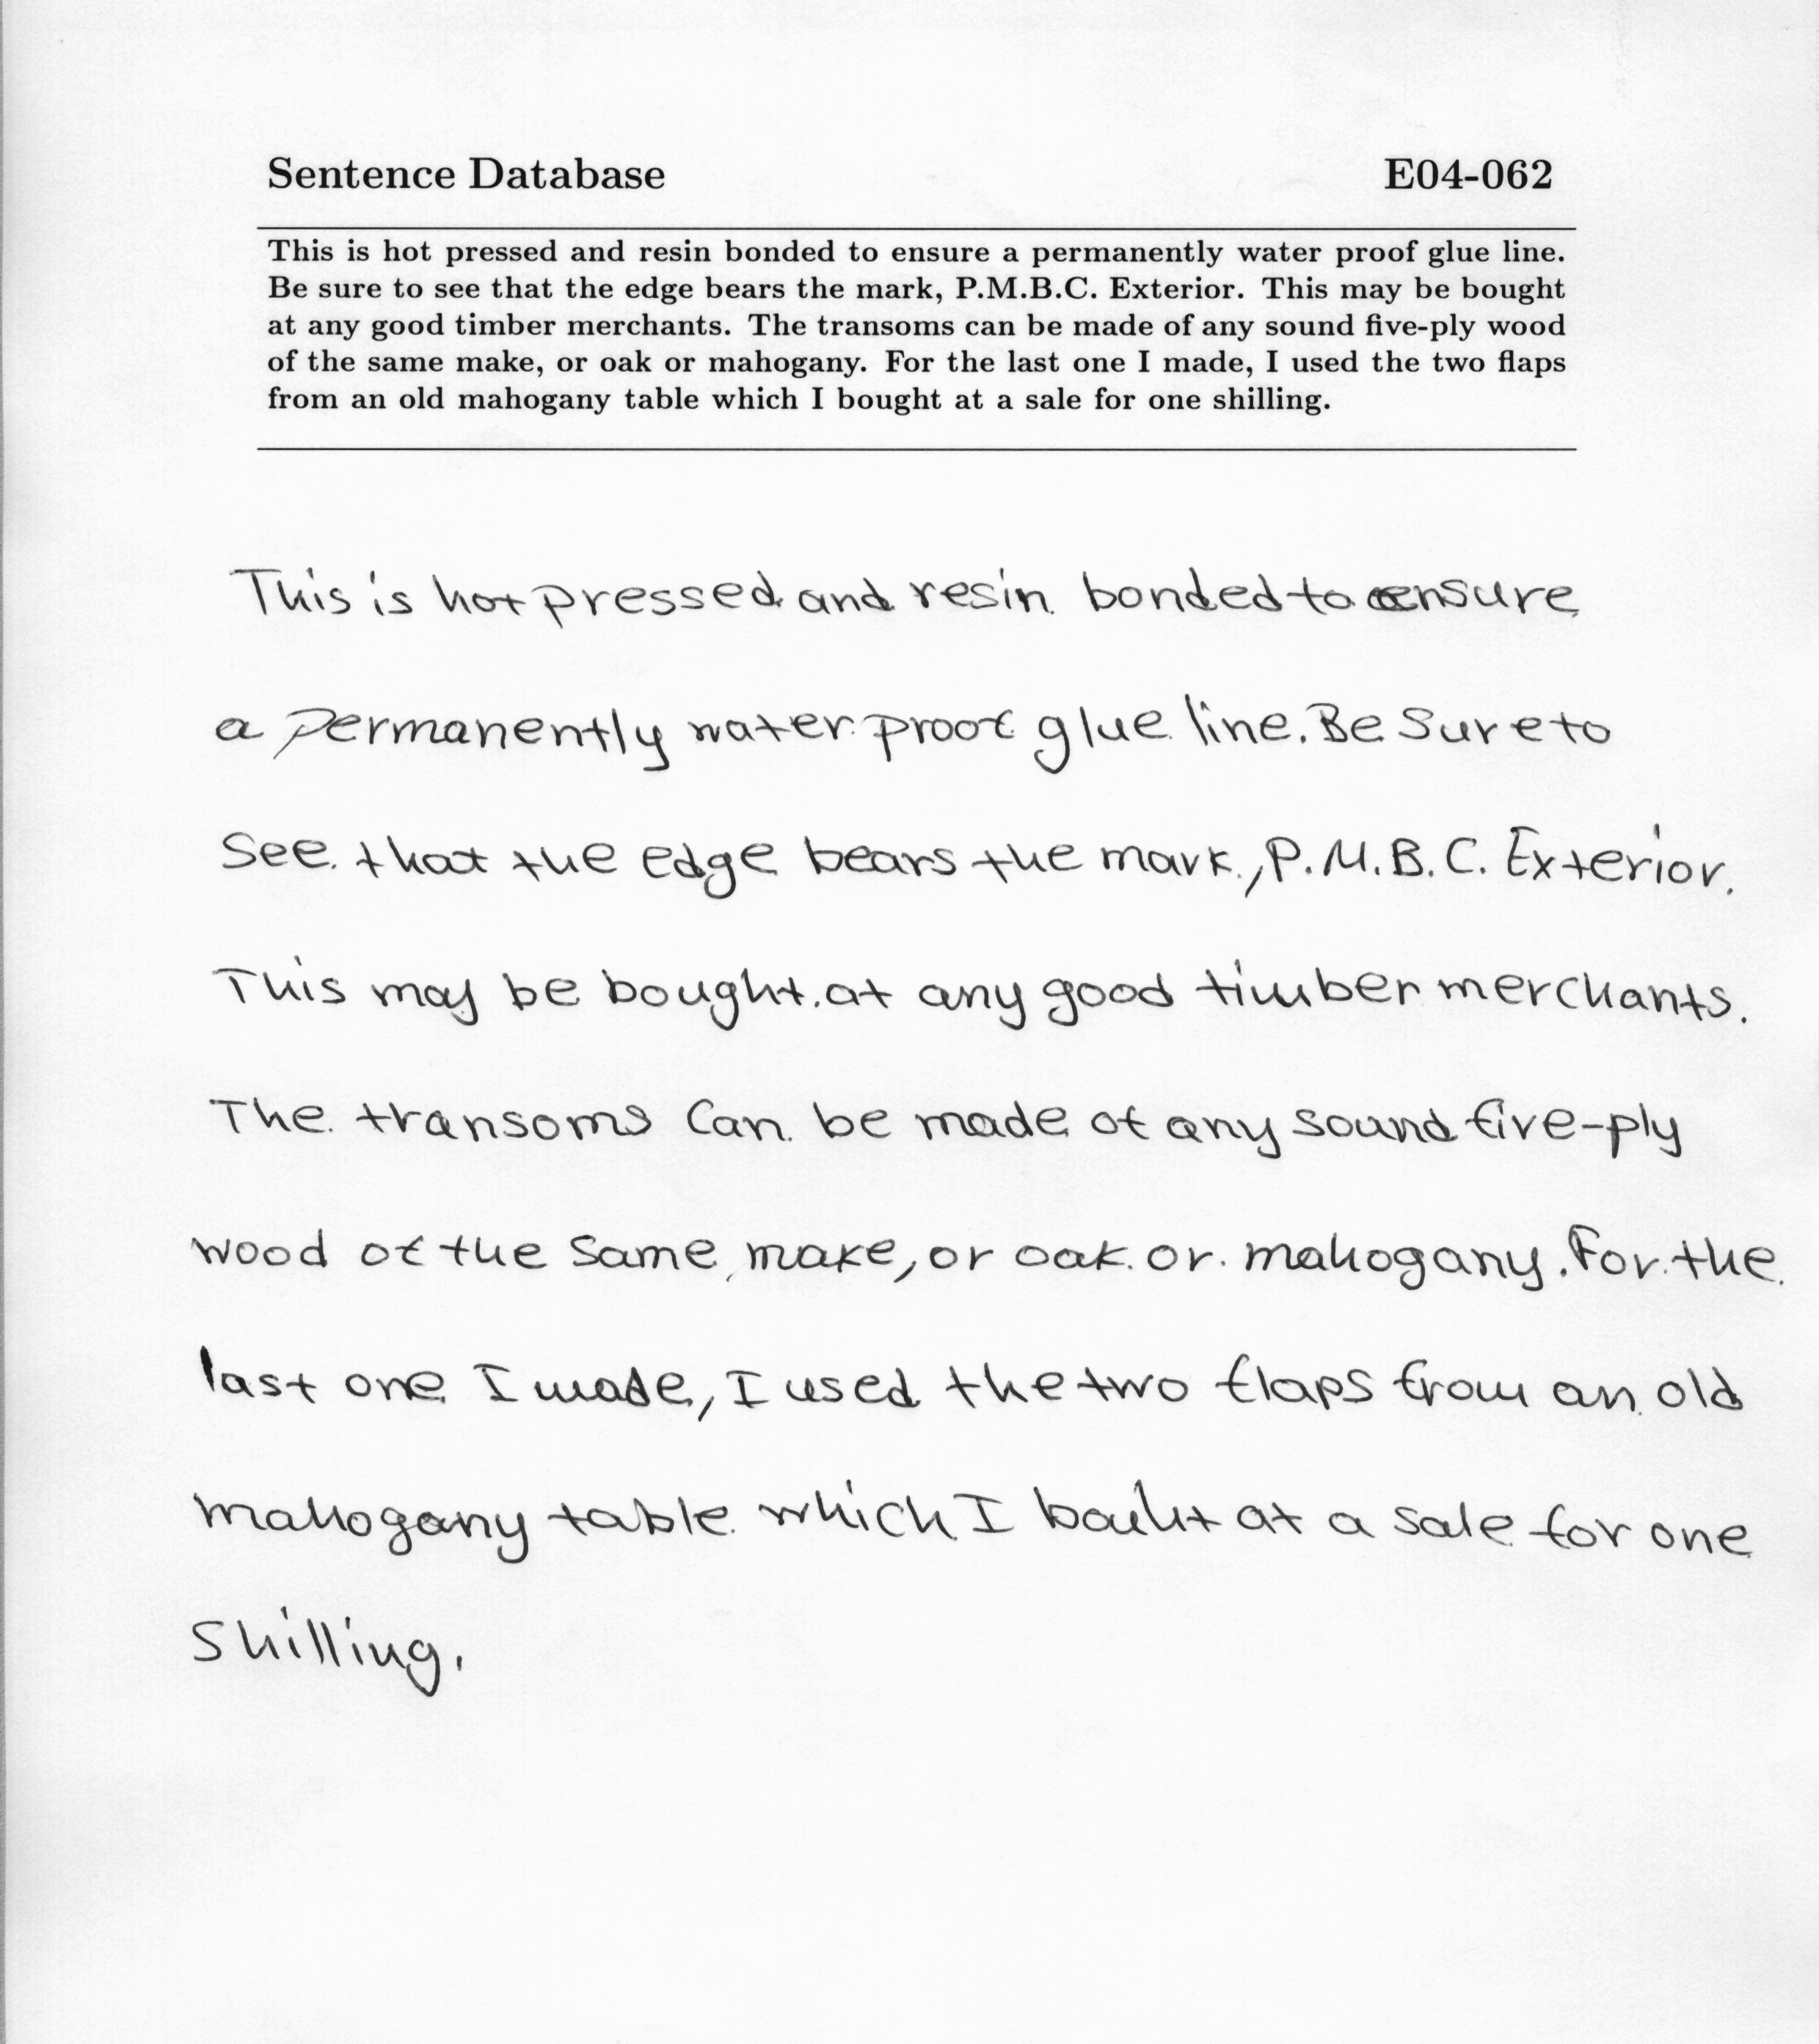 Sentence Database E04-062
This is hot pressed and resin bonded to ensure a permanently water proof glue line.
Be sure to see that the edge bears the mark, P.M.B.C. Exterior. This may be bought
at any good timber merchants. The transoms can be made of any sound five-ply wood
of the same make, or oak or mahogany. For the last one I made, I used the two flaps
from an old mahogany table which I bought at a sale for one shilling.
This is hot pressed and resin bonded to ensure
a permanently water proof glue line. Be sure to
see that the edge bears the mark, P.M.B.C. Exterior.
This may be bought at any good timber merchants.
The transoms can be made of any sound five-ply
wood of the same make, or oak or mahogany. For the
last one I made, I used the two flaps from an old
mahogany table which I bauht at a sale for one
shilling.